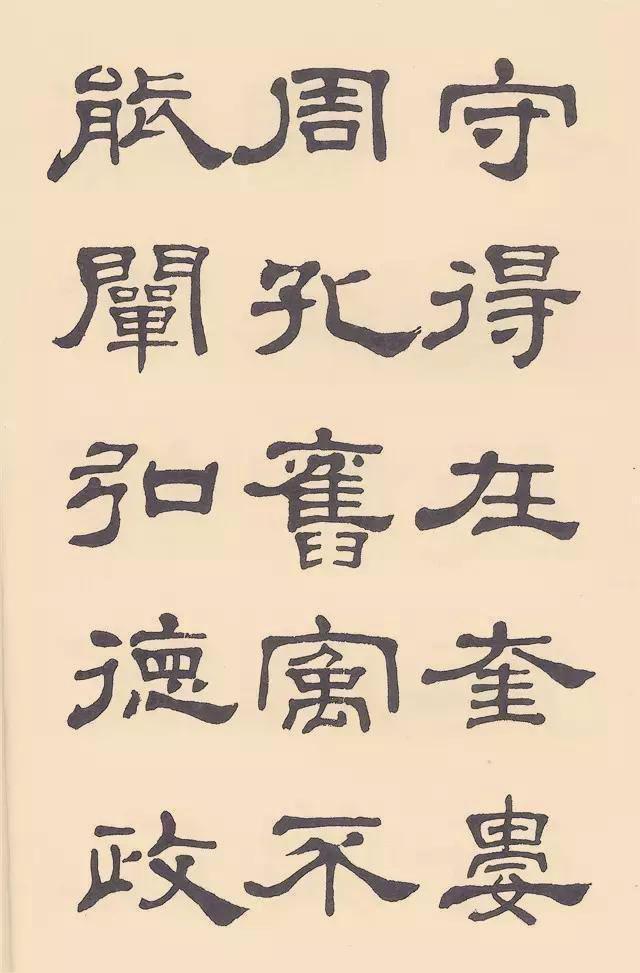 守得在奎婁
周孔舊寓不
能闡弘德政